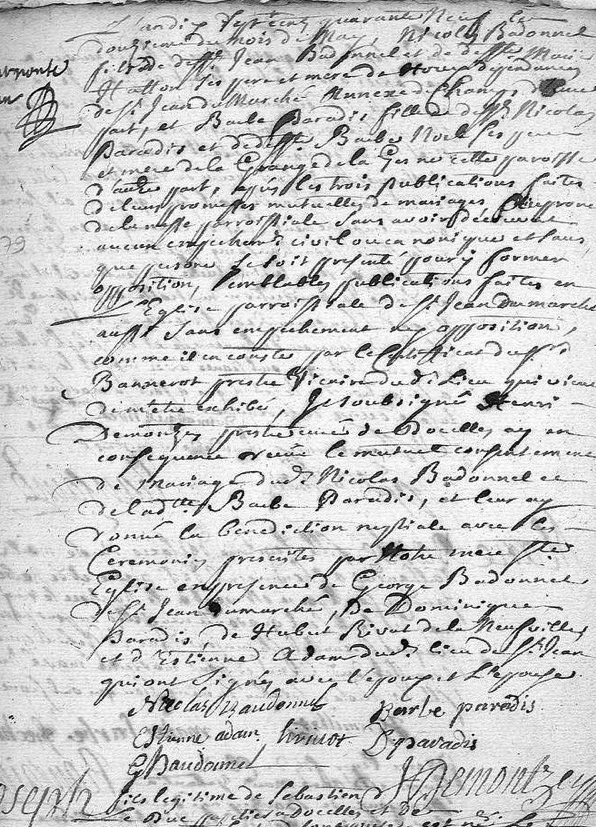 sept cent quarante Neuf le
douzieme du mois de May, Nicolas Badonnel
fils de deffts Jean Badonnel et de deffte
Hatton ses pere et mere de
de St Jean du Marché Annexe de Champ, d'une
part, et Barbe Paradis fille de deffts Nicolas
Paradis et de deffte Barbe Noel ses pere
et mere de la Grange de la cette paroisse
d'autre part, après les trois publications faites
de leurs promesses mutuelles de mariages au prone
de la messe parroissiale sans avoir découvert
aucun empechemt civil ou canonique et sans
que persone se soit presenté pour y former
opposition, semblables publications faites en
l'Eglise parroissiale de St Jean du marché
aussi sans empechement ny opposition,
comme il en conste par le certificat du sr
Bannerot prestre Vicaire du dt Lieu qui vient
de m'etre exhibé, Je soubsigné Henri
Demontzey prestre curé de Docelles ay en
consequence receu le mutuel consentement
de mariage dudt Nicolas Badonnel et
de ladtte Barbe Paradis, et leur ay
donné la benediction nuptiale avec les
Ceremonies prescrites par Notre mere Ste
Eglise en presence de George Badonnel
de St Jean du marché, de Dominique
Paradis, de Hubert Rivot de la Neufville,
et d'Estienne Adam dudt lieu de St Jean
qui ont signés avec l'epoux et l'epouse.
Nicolas Baudonnel Barbe paradis
Estienne adam D paradis
G Baudonnel H Demontzey
Joseph fils legitime de Sebastien